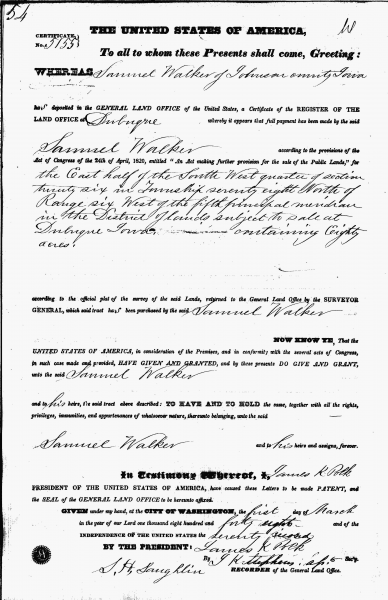 54
W
THE UNITED STATES OF AMERICA,
CERTIFICATE
No. 5153
To all to whom these Presents shall come, Greeting:
WHEREAS Samuel Walker of Johnson county Iowa
ha deposited in the GENERAL LAND OFFICE of the United States, a Certificate of the REGISTER OF THE
LAND OFFICE at Dubuque whereby it appears that full payment has been made by the said
Samuel Walker according to the provisions of the
Act of Congress of the 24th of April, 1820, entitled "An Act making further provision for the sale of the Public Lands," for
the East half of the South West quarter of section
twenty six in Township seventy eight North of
Range six West of the fifth principal meridian
in the District of lands subject to sale at
Dubuque Iowa containing Eighty
acres
according to the official plat of the survey of the said Lands, returned to the General Land Office by the SURVEYOR
GENERAL, which said tract has been purchased by the said Samuel Walker
NOW KNOW YE, That the
UNITED STATES OF AMERICA, in consideration of the Premises, and in conformity with the several acts of Congress,
in such case made and provided, HAVE GIVEN AND GRANTED, and by these presents DO GIVE AND GRANT,
unto the said Samuel Walker
and to his heirs, the said tract above described: TO HAVE AND TO HOLD the same, together with all the rights,
privileges, immunities, and appurtenances of whatsoever nature, thereunto belonging, unto the said
Samuel Walker and to his heirs and assigns, forever.
In Testimony Whereof, I, James K. Polk
PRESIDENT OF THE UNITED STATES OF AMERICA, have caused these Letters to be made PATENT, and
the SEAL of the GENERAL LAND OFFICE to be hereunto affixed.
GIVEN under my hand, at the CITY OF WASHINGTON, the first day of March
in the year of our Lord one thousand eight hundred and forty eight and of the
INDEPENDENCE OF THE UNITED STATES the seventy second
BY THE PRESIDENT: James K. Polk
By J. K. Stephens, Sec'y.
S. H. Laughlin RECORDER of the General Land Office.